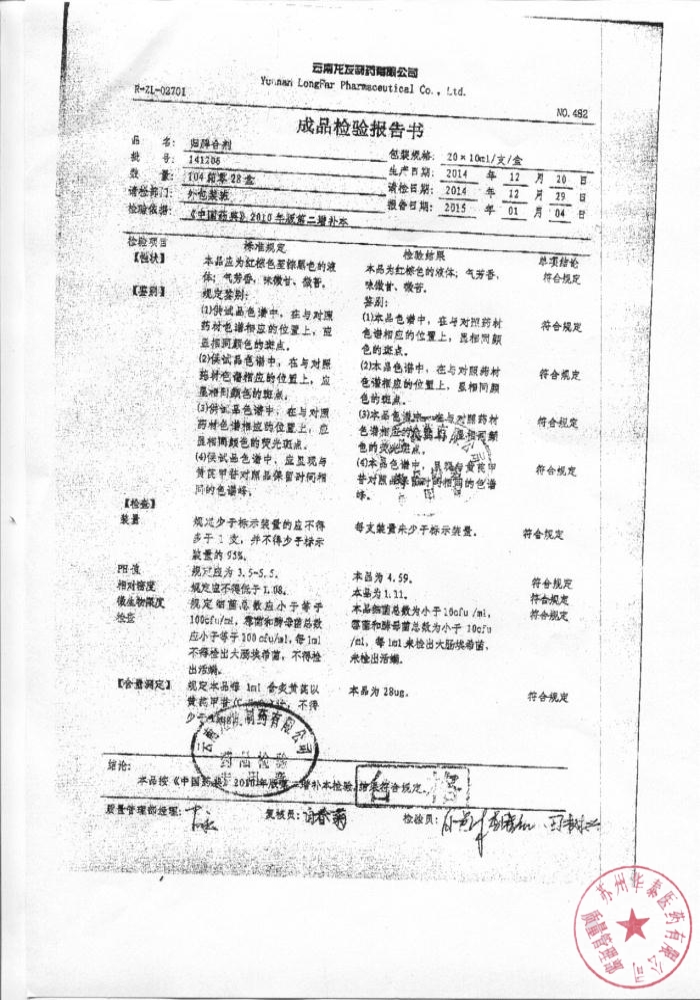 云南龙发制药有限公司
Yunnan LongFar Pharmaceutical Co., Ltd.
R-ZL-02701
NO.482
成品检验报告书
品 名: 归脾合剂 包装规格: 20×10ml/支/盒
批 号: 141206 生产日期: 2014 年 12 月 20 日
数 量: 104箱零28盒 请检日期: 2014 年 12 月 29 日
请检部门: 外包装班 报告日期: 2015 年 01 月 04 日
检验依据: 《中国药典》2010年版第二增补本
检验项目 标准规定 检验结果 单项结论
【性状】 本品应为红棕色至棕黑色的液 本品为红棕色的液体;气芳香, 符合规定
体;气芳香,味微甘、微苦。 味微甘、微苦。
【鉴别】 规定鉴别: 鉴别:
(1)供试品色谱中,在与对照 (1)本品色谱中,在与对照药材 符合规定
药材色谱相应的位置上,应 色谱相应的位置上,显相同颜
显相同颜色的斑点。 色的斑点。
(2)供试品色谱中,在与对照 (2)本品色谱中,在与对照药材 符合规定
药材色谱相应的位置上,应 色谱相应的位置上,显相同颜
显相同颜色的斑点。 色的斑点。
(3)供试品色谱中,在与对照 (3)本品色谱中,在与对照药材 符合规定
药材色谱相应的位置上,应 色谱相应的位置上,显相同颜
显相同颜色的荧光斑点。 色的荧光斑点。
(4)供试品色谱中,应呈现与 (4)本品色谱中,呈现与黄芪甲 符合规定
黄芪甲苷对照品保留时间相 苷对照品保留时间相同的色谱
同的色谱峰。 峰。
【检查】
装量 规定少于标示装量的应不得 每支装量未少于标示装量。 符合规定
多于1支,并不得少于标示
装量的95%。
PH值 规定应为3.5-5.5。 本品为4.59。 符合规定
相对密度 规定应不得低于1.08。 本品为1.11。 符合规定
微生物限度 规定细菌总数应小于等于 本品细菌总数为小于10cfu/ml, 符合规定
检查 100cfu/ml,霉菌和酵母菌总数 霉菌和酵母菌总数为小于10cfu
应小于等于100cfu/ml,每1ml /ml,每1ml未检出大肠埃希菌,
不得检出大肠埃希菌,不得检 未检出活螨。
出活螨。
【含量测定】 规定本品每1ml含炙黄芪以 本品为28ug。 符合规定
黄芪甲苷 计,不得
少于
制药有限公司
药品检验
专用章
结论:
本品按《中国药典》2010年版第二增补本检验,结果符合规定。
质量管理部经理: 复核员: 检验员:
苏州华泰医药有限公司
质量管理部